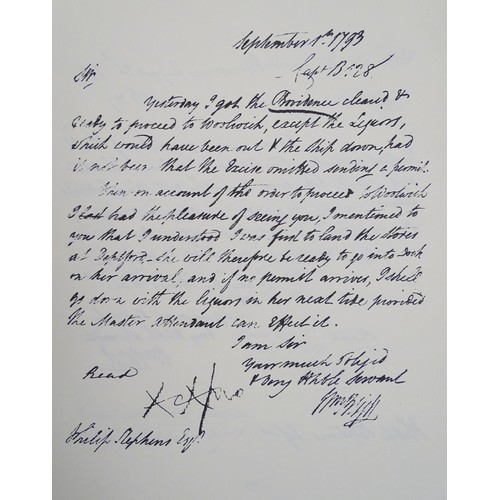 September 1st. 1793
Capt B. 28
Sir
Yesterday I got the Providence cleared &
ready to proceed to Woolwich, except the Liquors,
which would have been out & the Ship down, had
it not been that the Excise omitted sending a permit.
When on account of the order to proceed to Woolwich
I last had the pleasure of seeing you, I mentioned to
you that I understood I was first to land the stores
at Deptford - she will therefore be ready to go into Dock
on her arrival, and if no permit arrives, I shall
go down with the liquors in her next tide provided
the Master Attendant can effect it.
I am Sir
Your much Obliged
& Very Hble Servant
Wm Bligh
Read
Philip Stephens Esqr.